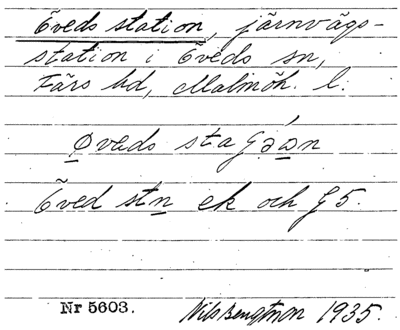 Öveds station, järnvägs-
station i Öveds sn,
Färs hd, Malmöh. l.
Öved stn ek och G5.
Nr 5603. Nils Bengtsson 1935.